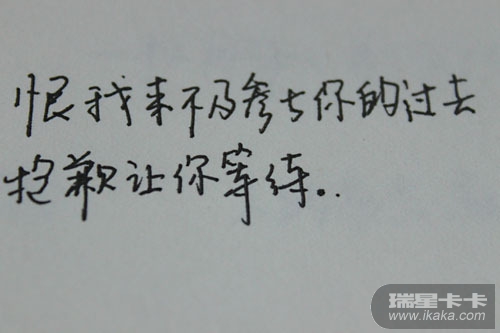 恨我来不及参与你的过去
抱歉让你等待。..
瑞星卡卡
www.ikaka.com